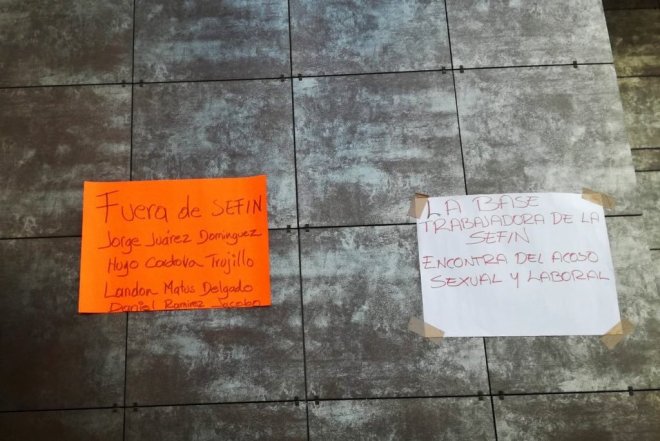 Fuera de SEFIN
Jorge Juárez Domínguez
Hugo Cordova Trujillo
Landon Matus Delgado
Daniel Ramirez Jacobo
LA BASE
TRABAJADORA DE LA
SEFIN
ENCONTRA DEL ACOSO
SEXUAL Y LABORAL